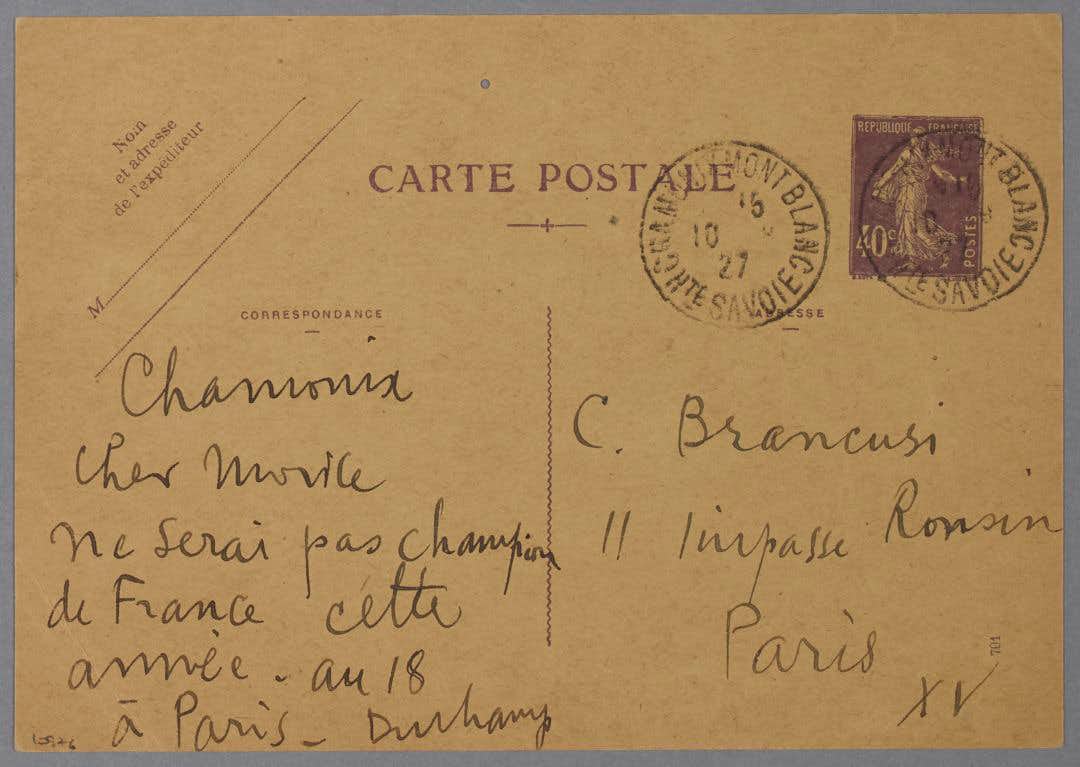 Nom
et adresse
de l'expéditeur
M
CARTE POSTALE
CHAMONIX MONT BLANC
15
10
27
HTE SAVOIE
REPUBLIQUE FRANÇAISE
40c
POSTES
MONT BLANC
HTE SAVOIE
CORRESPONDANCE
ADRESSE
Chamonix
Cher Morice
ne serai pas champion
de France cette
année - au 18
à Paris - Duchamp
C. Brancusi
11 Impasse Ronsin
Paris
XV
701